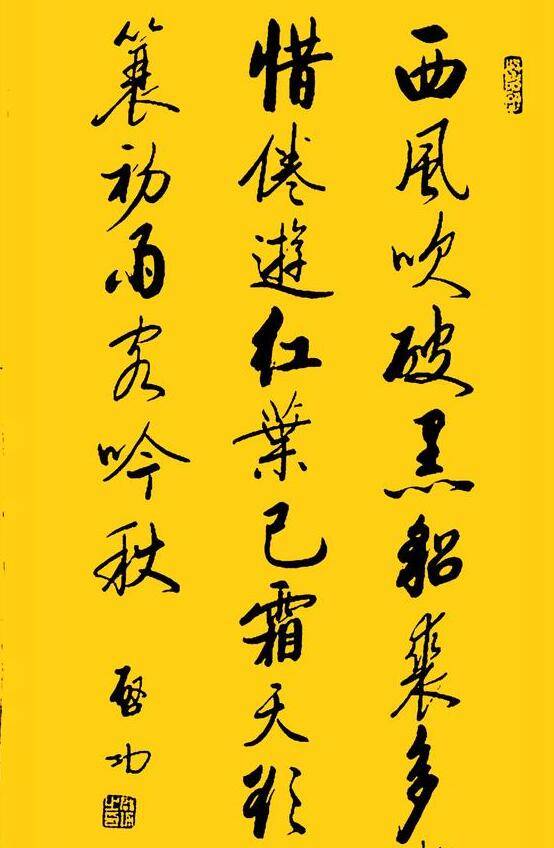 西風吹破黑貂裘多
惜倦遊紅葉已霜天欲
蓑初雨客吟秋
啓功